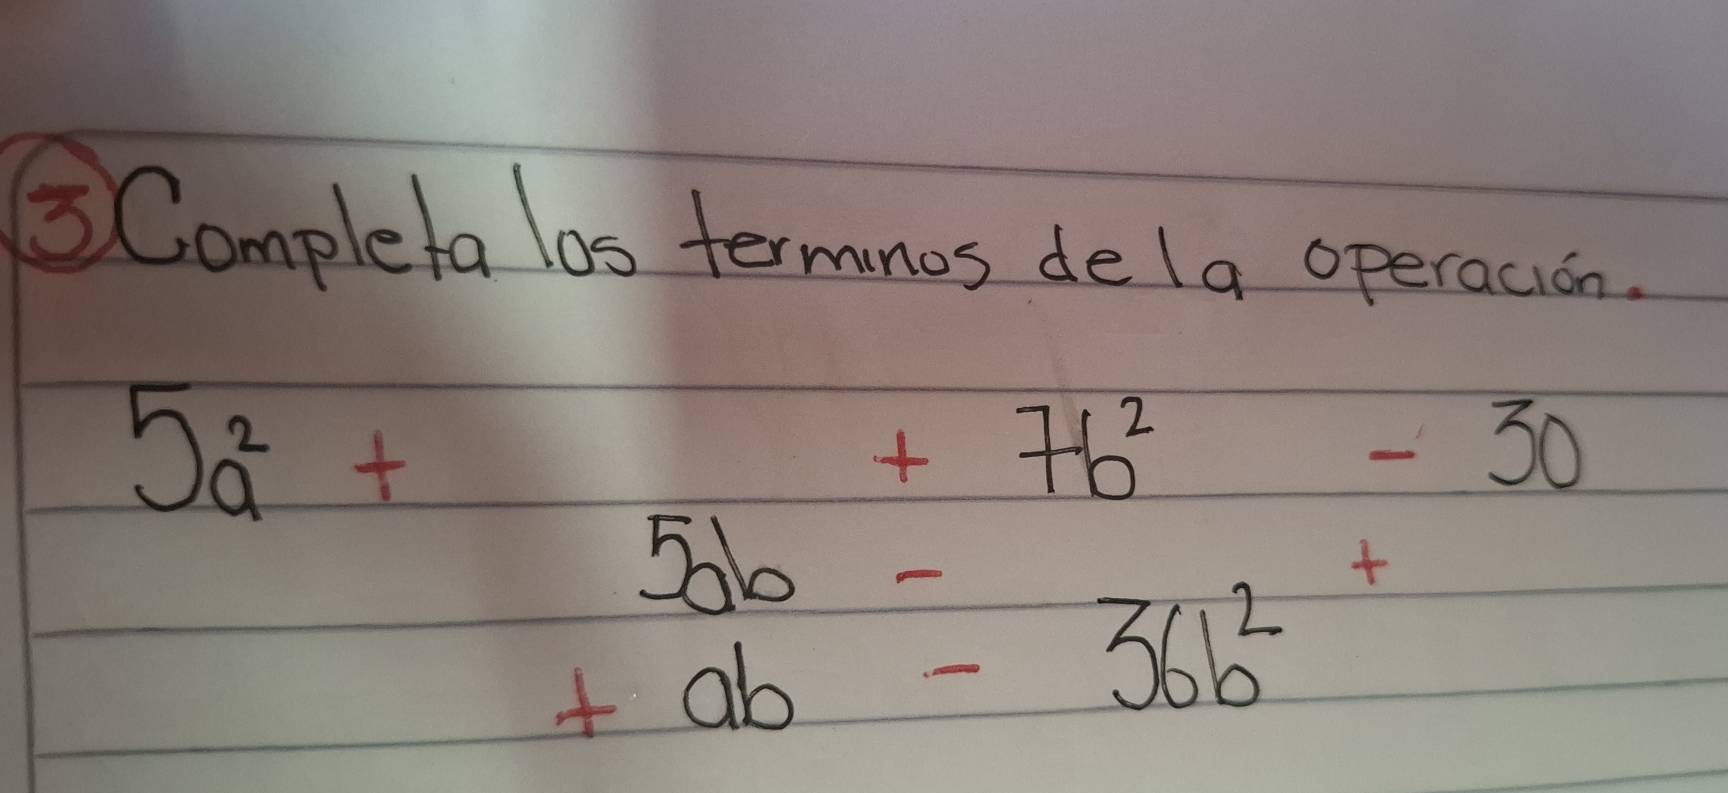 3 Completa los terminos de la operación.
5a² + + 7b² - 30
5ab - +
+ ab - 36b²